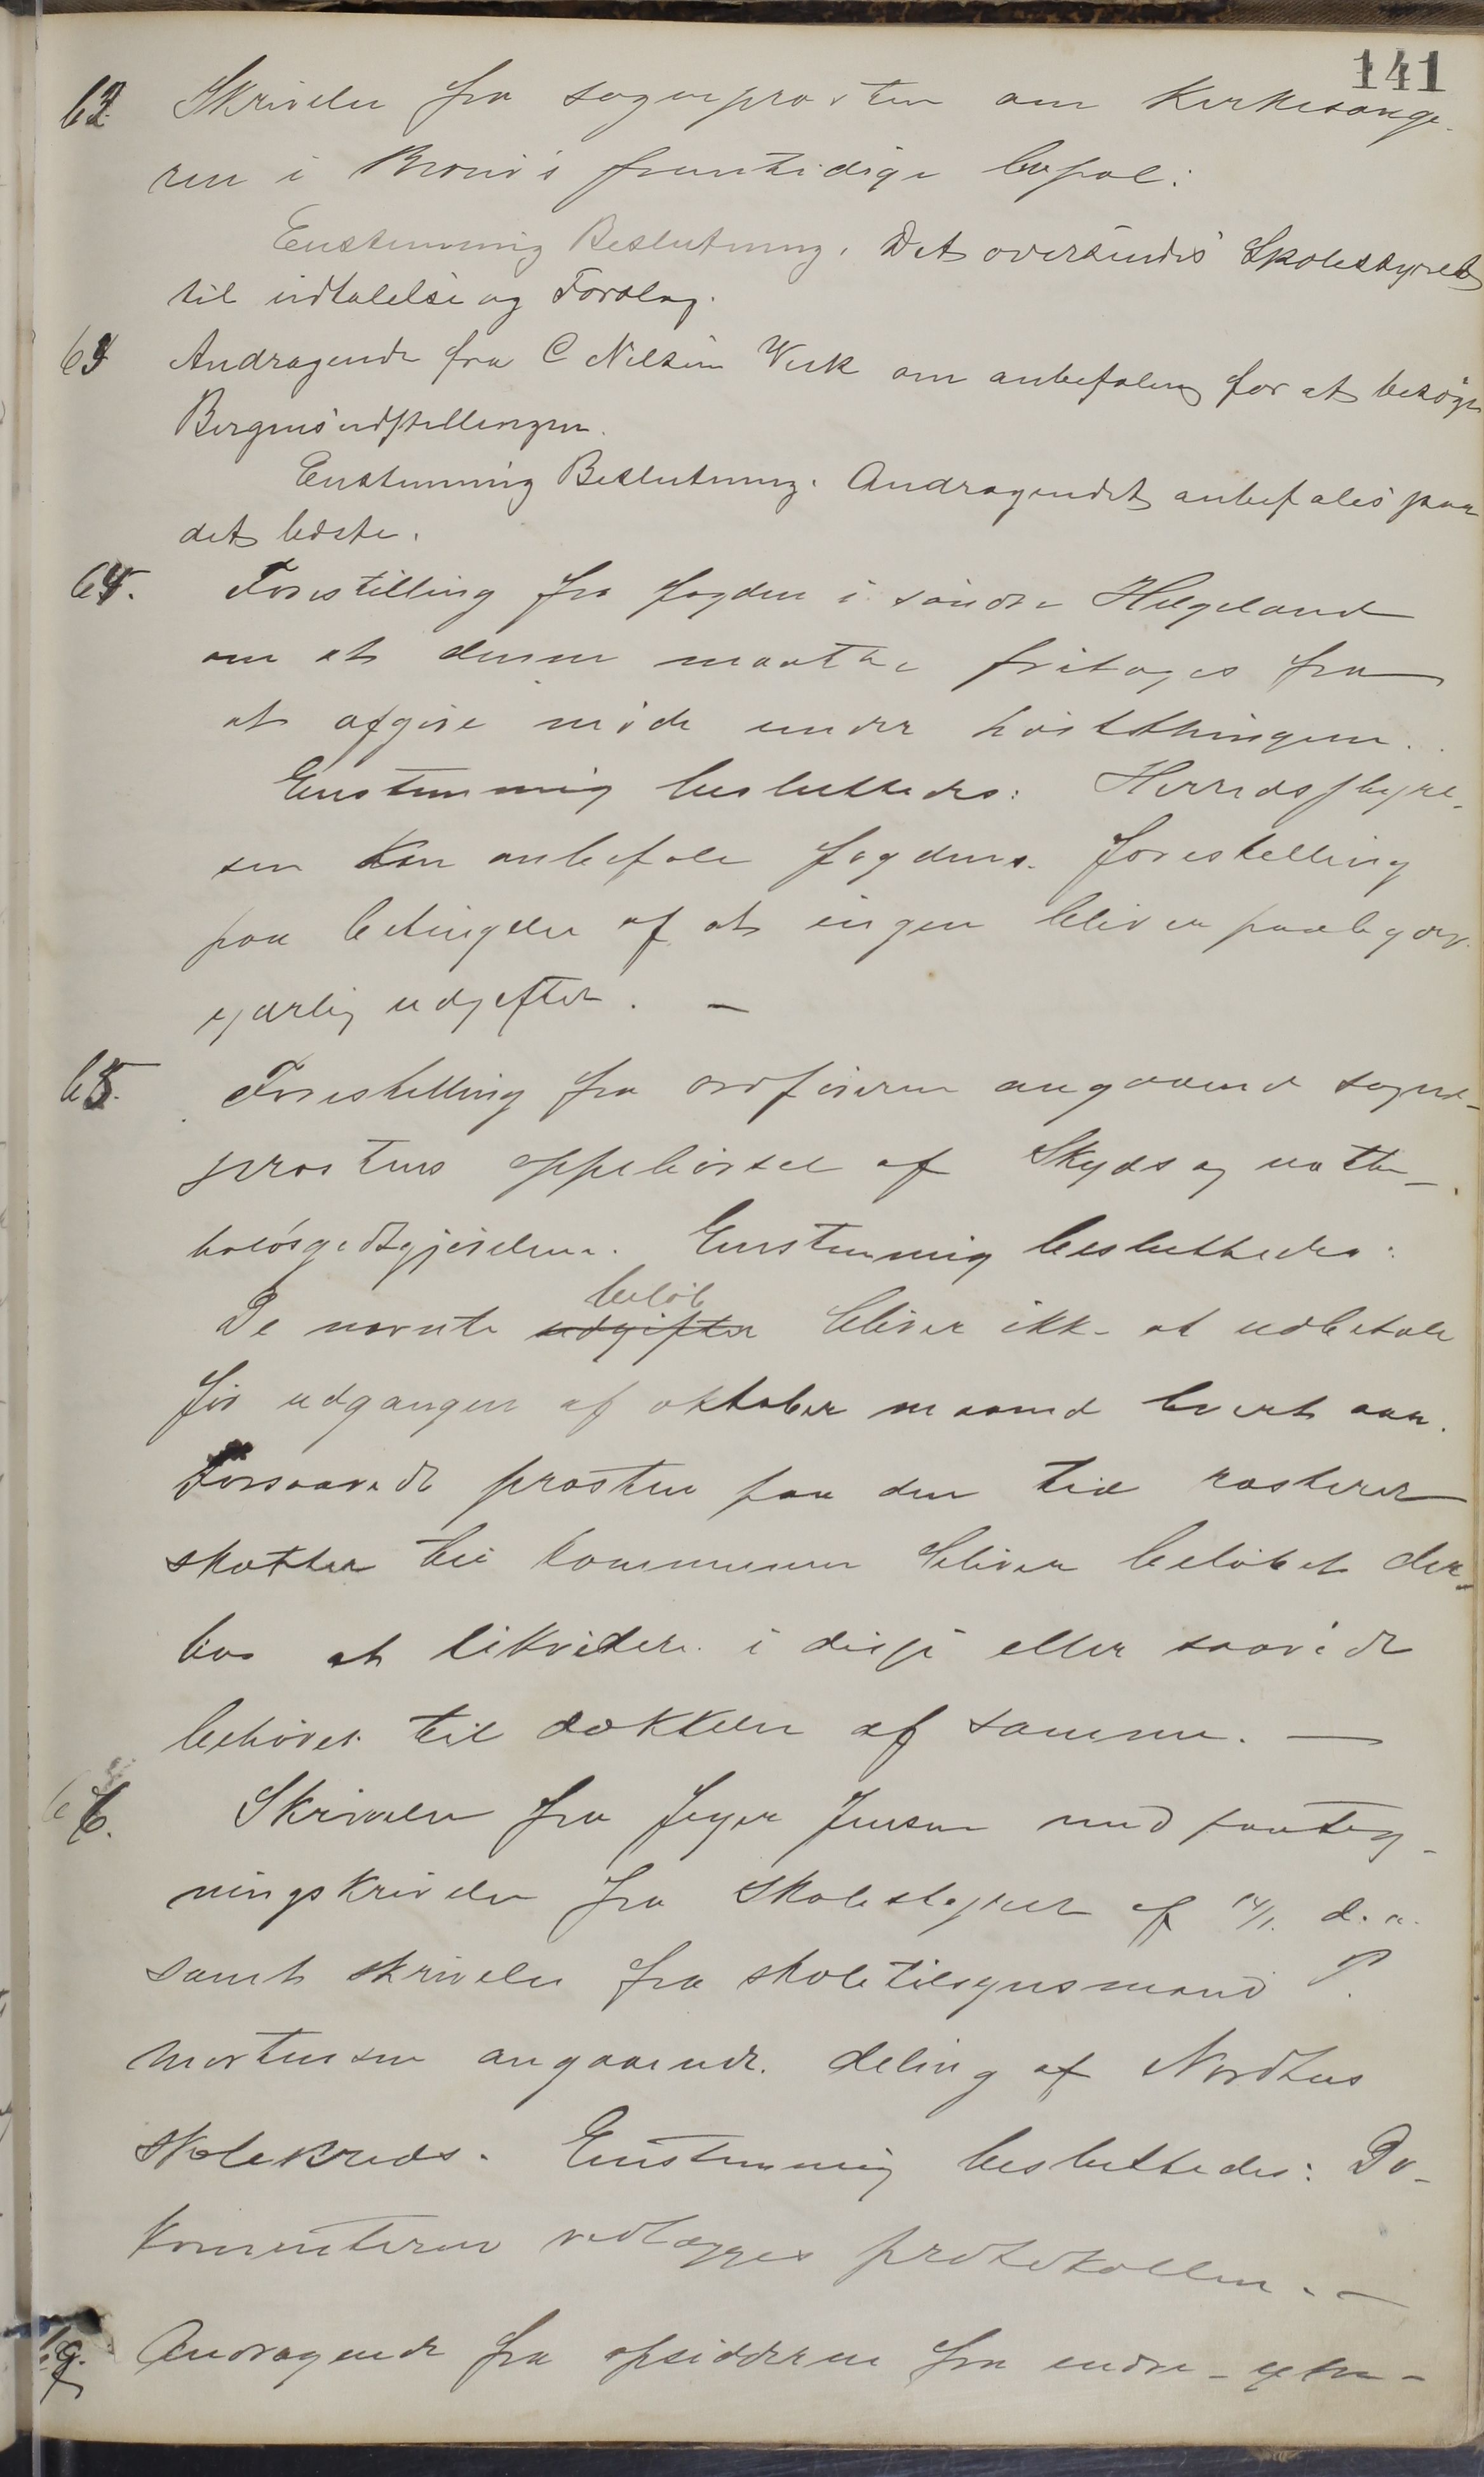 141
62. Skrivelse fra sogneprosten om Kirkesange-
ren i Brønø's fremtidige bopæl:
Enstemmig Beslutning. Det oversendes Skolestyret
til udtalelse og Forslag.
63 Andragende fra C Nilsen Veik om anbefaling for at besøge
Bergensudstillingen.
Enstemmig Beslutning. Andragendet anbefales paa
det bedste.
64. Forestilling fra fogden i søndre Helgeland
om at denne maatte fritages fra
at afgive møde under høstthingene.
Enstemmig besluttedes: Herredsstyrel-
sen kan anbefale fogdens forestilling
paa betingelse af at ingen bliver paabyrdet
udgifter. —
65. Forestilling fra ordføreren angaaende sogne-
prostens oppebørsel af Skyds og natte-
holdsgodtgjørelse. Enstemmig besluttedes:
beløb
De nævnte udgifter bliver ikke at udbetale
før udgangen af oktober maaned hvert aar.
Forsaavidt prosten paa den tid resterer
skatter til kommunen bliver beløbet der-
hos at likvidere i disse eller saavidt
behøves til dækkelse af samme. —
66. Skrivelse fra Jeger Jensen med paateg-
ningskrivelse fra Skolestyret af 14/1. d. a.
samt skrivelse fra skoletilsynsmand P.
Mortensen angaaende deling af Nordhus
Skolekreds. Enstemmig besluttedes: Do-
komenterne vedlægges protokollen. —
Andragende fra opsidderne fra indre- ytre-